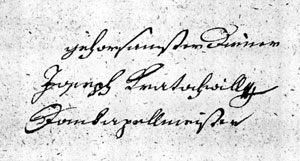 gehorsamster Diener
Joseph Kratochwilly
Domkapellmeister